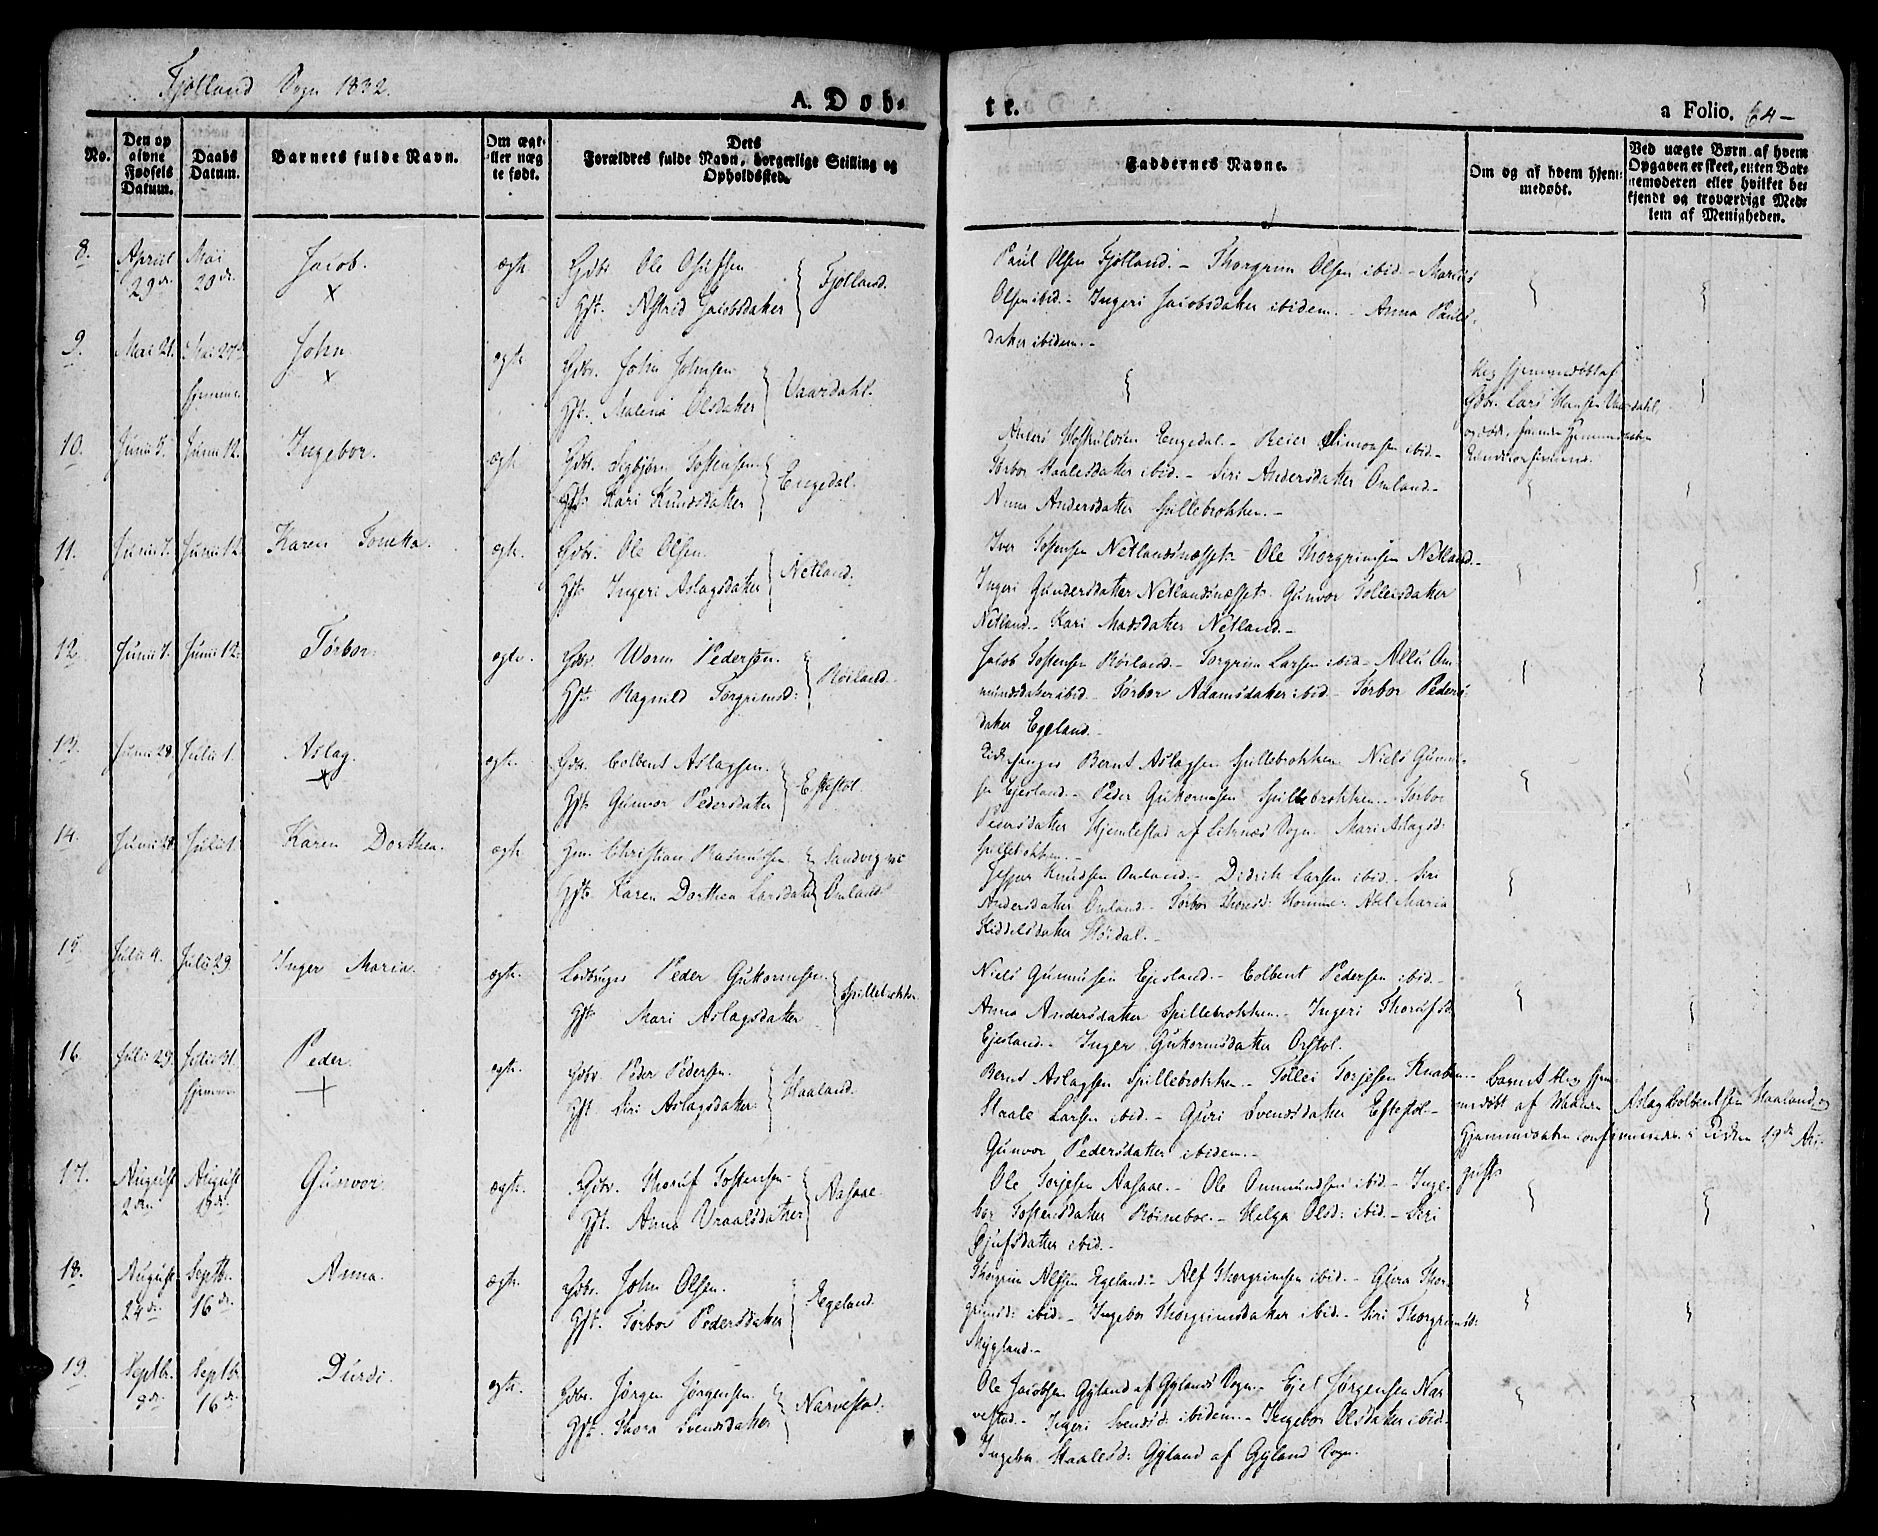 Fjotland Sogn 1832.
A. Døb-
te.
a Folio. 64-
No.
Den op
givne
Fødsels
Datum.
Daabs
Datum.
Barnets fulde Navn.
Om ægte
eller uæg
te født.
Dets
Forældres fulde Navn, borgerlige Stilling og
Opholdssted.
Faddernes Navne.
Om og af hvem hjem-
medøbt.
Ved uægte Børn af hvem
Opgaven er skeet, enten Bar-
nemoderen eller hvilket be-
kjendt og troværdigt Med-
lem af Menigheden.
8. April 29de Mai 20de Jacob. ægte
Gdbr. Ole
Hst. Astrid Jacobsdatter Fjotland.
Paul Olsen Fjotland. - Thorgrim Olsen ibid. - Marcus
Olsen ibid. - Ingeri Jacobsdatter ibidem. - Anna Pauls-
datter ibidem. -
9. Mai 21. Mai 27de hjemme John ægte
Gdbr. John Johnsen
Hst. Malena Olsdatter Vaardahl.
hjemmedøbt af
Gdbr. Lars Hansen Vaardahl,
10. Junii 5. Junii 12. Ingebor. ægte
Gdbr. Sigbjørn Tostensen
Hst. Kari Knudsdatter Engedal.
Anders Engedal. - Reier Simonsen ibid. -
Torbor Staalesdatter ibid. - Siri Andersdatter Omland -
Anna Andersdatter Spillebrokken. -
11. Junii 7. Junii 12. Karen Tonetta. ægte
Gdbr. Ole Olsen.
Hst. Ingeri Aslagsdatter Netland.
Iver Tostensen Netlandsnæsset - Ole Thorgrimsen Netland. -
Ingeri Gundersdatter Netlandsnæsset - Gunvor Tolleisdatter
Netland. - Kari Madsdatter Netland. -
12. Junii 7. Junii 12. Torbor. ægte
Gdbr. Worm Pedersen.
Hst. Ragnild Torgrimsd: Røiland.
Jacob Tostensen Røiland. - Torgrim Larsen ibid - Alli Om-
mundsdatter ibid. - Torbor Adamsdatter ibid. - Torbor Peders-
datter Egeland. -
13. Junii 28. Julii 1. Aslag. ægte
Gdbr. Colbent Aslagsen.
Hst. Gunvor Pedersdatter Eftestøl
Bernt Aslagsen Spillebrokken Niels Gunnu-
sen Ejesland. - Peder Guttormsen Spillebrokken. - Torbor
Peersdatter Hjemlestad af Qvinæs Sogn. Mari Aslagsd:
Spillebrokken. -
14. Junii 28. Julii 1. Karen Dorthea. ægte
Christian Rasmussen Sandvig
Hst. Karen Dorthea Larsdatter Omland
Jesper Knudsen Omland. - Didrik Larsen ibid. - Siri
Andersdatter Omland - Torbor Thoresd: Homme. Abel Maria
Kiddelsdatter Høidal. -
15. Julii 4. Julii 29. Inger Maria. ægte
Peder Guttormsen.
Hst. Mari Aslagsdatter Spillebrokken
Niels Gunnusen Ejesland. - Colbent Pedersen ibid. -
Anna Andersdatter Spillebrokken. - Ingeri Thorufsd:
Ejesland. - Inger Guttormsdatter Ørstøl.
16. Julii 29. Julii 31 hjemme Peder. ægte
Gdbr. Peder Pedersen.
Hst Siri Aslagsdatter Haaland.
Bernt Aslagsen Spillebrokken - Tollei Torjesen Knaben -
Staale Larsen ibid. - Guri Svensdatter Eftestøl -
Gunvor Pedersdatter ibidem. -
Barnet hjem-
medøbt af Aslag Colbentsen Haaland, og
Hjemmedaaben confirmeret i Kirken 19de Au-
gust.
17. August 2den August 19de Gunvor ægte.
Gdbr. Thoruf Tostensen -
Hst. Anna Vraalsdatter Aasaae.
Ole Torjesen Aasaae. - Ole Ommundsen ibid - Inge-
bor Tostensdatter Røinebor. - Helga Olsd: ibid. - Siri
Gjufsdatter ibid. -
18. August 24de Septbr. 16de Anna. ægte.
Gdbr. John Olsen.
Hst. Torbor Pedersdatter Egeland.
Thorgrim Alfsen Egeland. - Alf Thorgrimsen ibid. - Gura Thor-
grimsd: ibid - Ingebor Thorgrimsdatter ibid. - Siri Thorgrimsd:
Mygland. -
19. Septbr. 8de Septbr. 16de Durdi. ægte.
Gdbr. Jørgen Jørgensen.
Hst. Thora Svensdatter Narvestad.
Ole Jacobsen Gyland af Gylands Sogn - Ejel Jørgensen Nar-
vestad. - Ingeri Svensd: ibidem. - Ingebor Olsdatter ibid. -
Ingebor Staalesd: Gyland af Gyland Sogn.